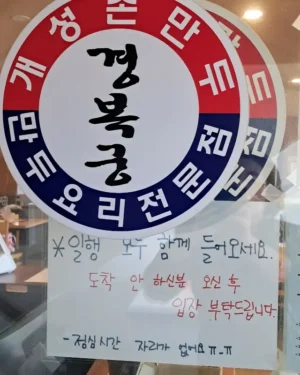 개성손만두
경복궁
만두요리전문점
두
문점
*일행 모두 함께 들어오세요.
도착 안 하신분 오신 후
입장 부탁드립니다.
- 점심시간 자리가 없어요 ㅠ-ㅠ